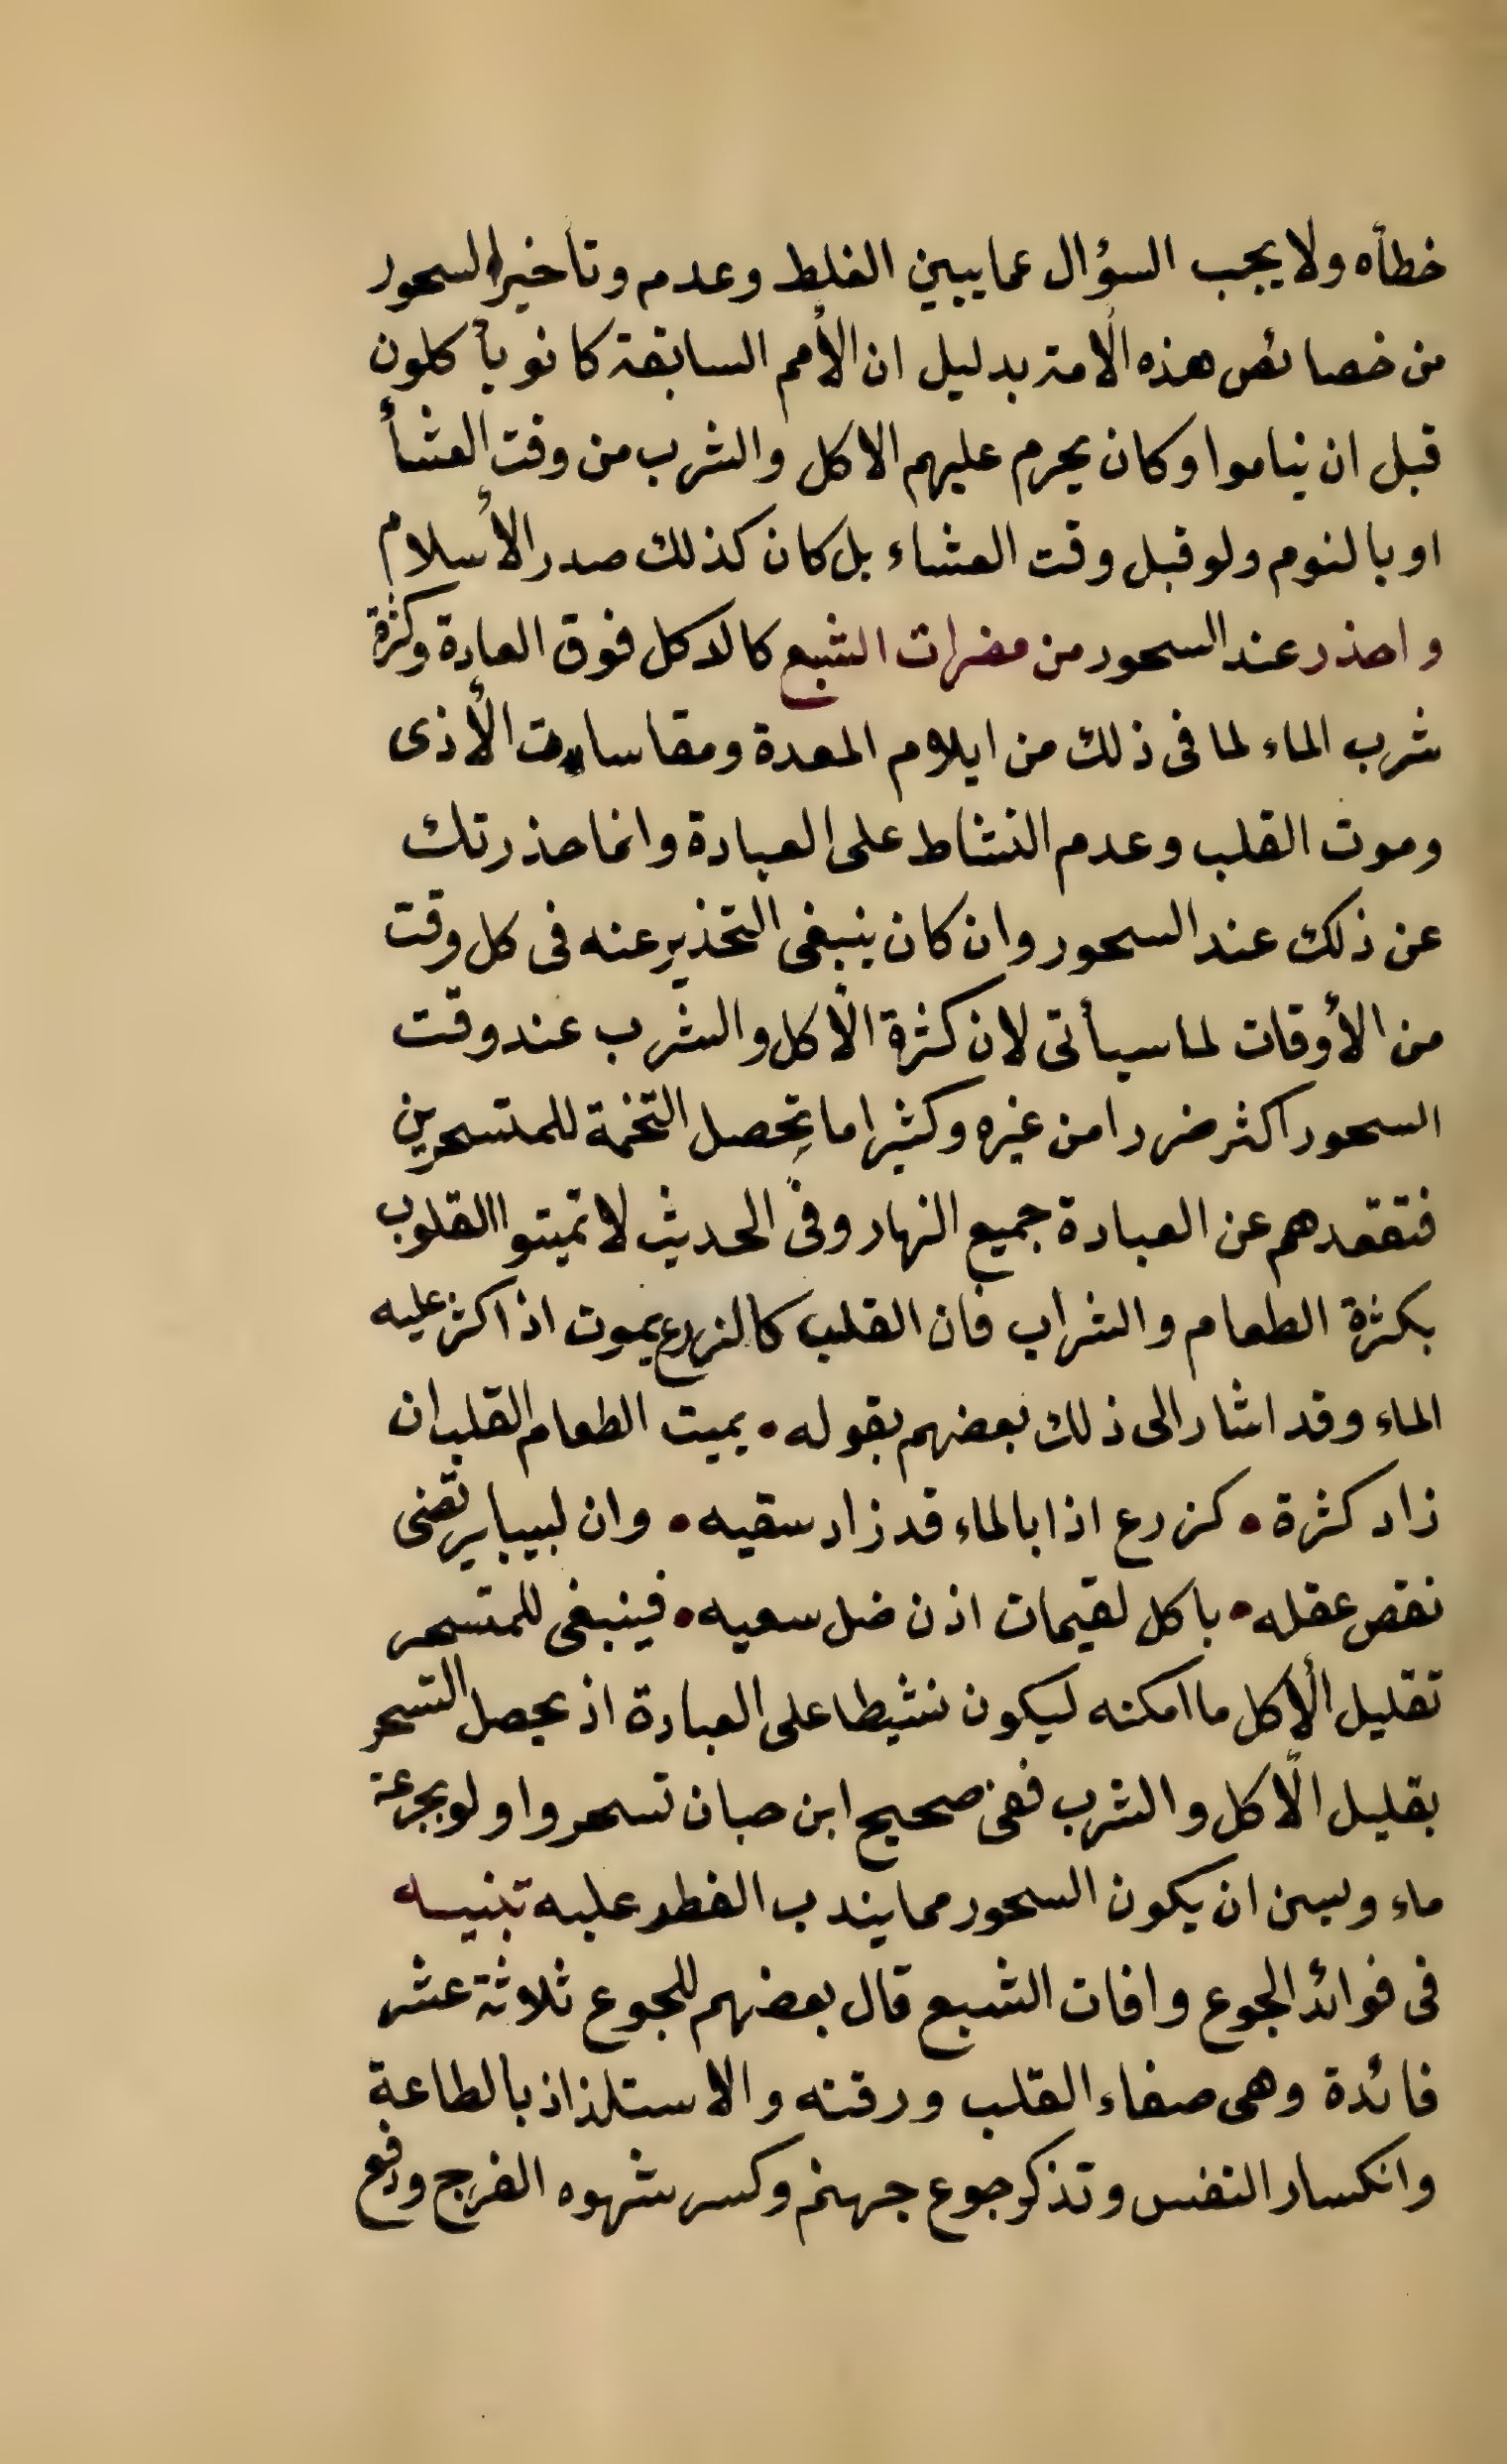 خطأه ولا يجب السؤال عما يبين الغلط وعدم وتأخير السحور
من خصائص هذه الأمة بدليل ان الأمم السابقة كانو يأكلون
قبل ان يناموا وكان يحرم عليهم الاكل والشرب من وقت العشأ
او بالنوم ولو قبل وقت العشاء بل كان كذلك صدر الأسلام
واحذر عند السحور من مضرات الشبع كالاكل فوق العادة وكثرة
شرب الماء لما فى ذلك من ايلام المعدة ومقاسات الأذى
وموت القلب وعدم النشاط على العبادة وانما حذرتك
عن ذلك عند السحور وان كان ينبغى التحذير عنه فى كل وقت
من الأوقات لما سيأتى لان كثرة الأكل والشرب عند وقت
السحور اكثر ضررا من غيره وكثيرا ما تحصل التخمة للمتسحرين
فتقعدهم عن العبادة جميع النهار وفى الحديث لا تميتوا القلوب
بكثرة الطعام والشراب فان القلب كالزرع يموت اذا كثر عليه
الماء وقد اشار الى ذلك بعضهم بقوله • يميت الطعام القلب ان
زاد كثرة • كزرع اذا بالماء قد زاد سقيه • وان لبيبا يرتضى
نقص عقله • باكل لقيمات اذن ضل سعيه • فينبغى للمتسحر
تقليل الأكل ما امكنه ليكون نشيطا على العبادة اذ يحصل التسحر
بقليل الأكل والشرب ففى صحيح ابن حبان تسحروا ولو بجرعة
ماء ويسن ان يكون السحور مما يندب الفطر عليه تنبيه
فى فوائد الجوع وافات الشبع قال بعضهم للجوع ثلاثة عشر
فائدة وهى صفاء القلب ورقته والاستلذاذ بالطاعة
وانكسار النفس وتذكر جوع جهنم وكسر شهوه الفرج ودفع